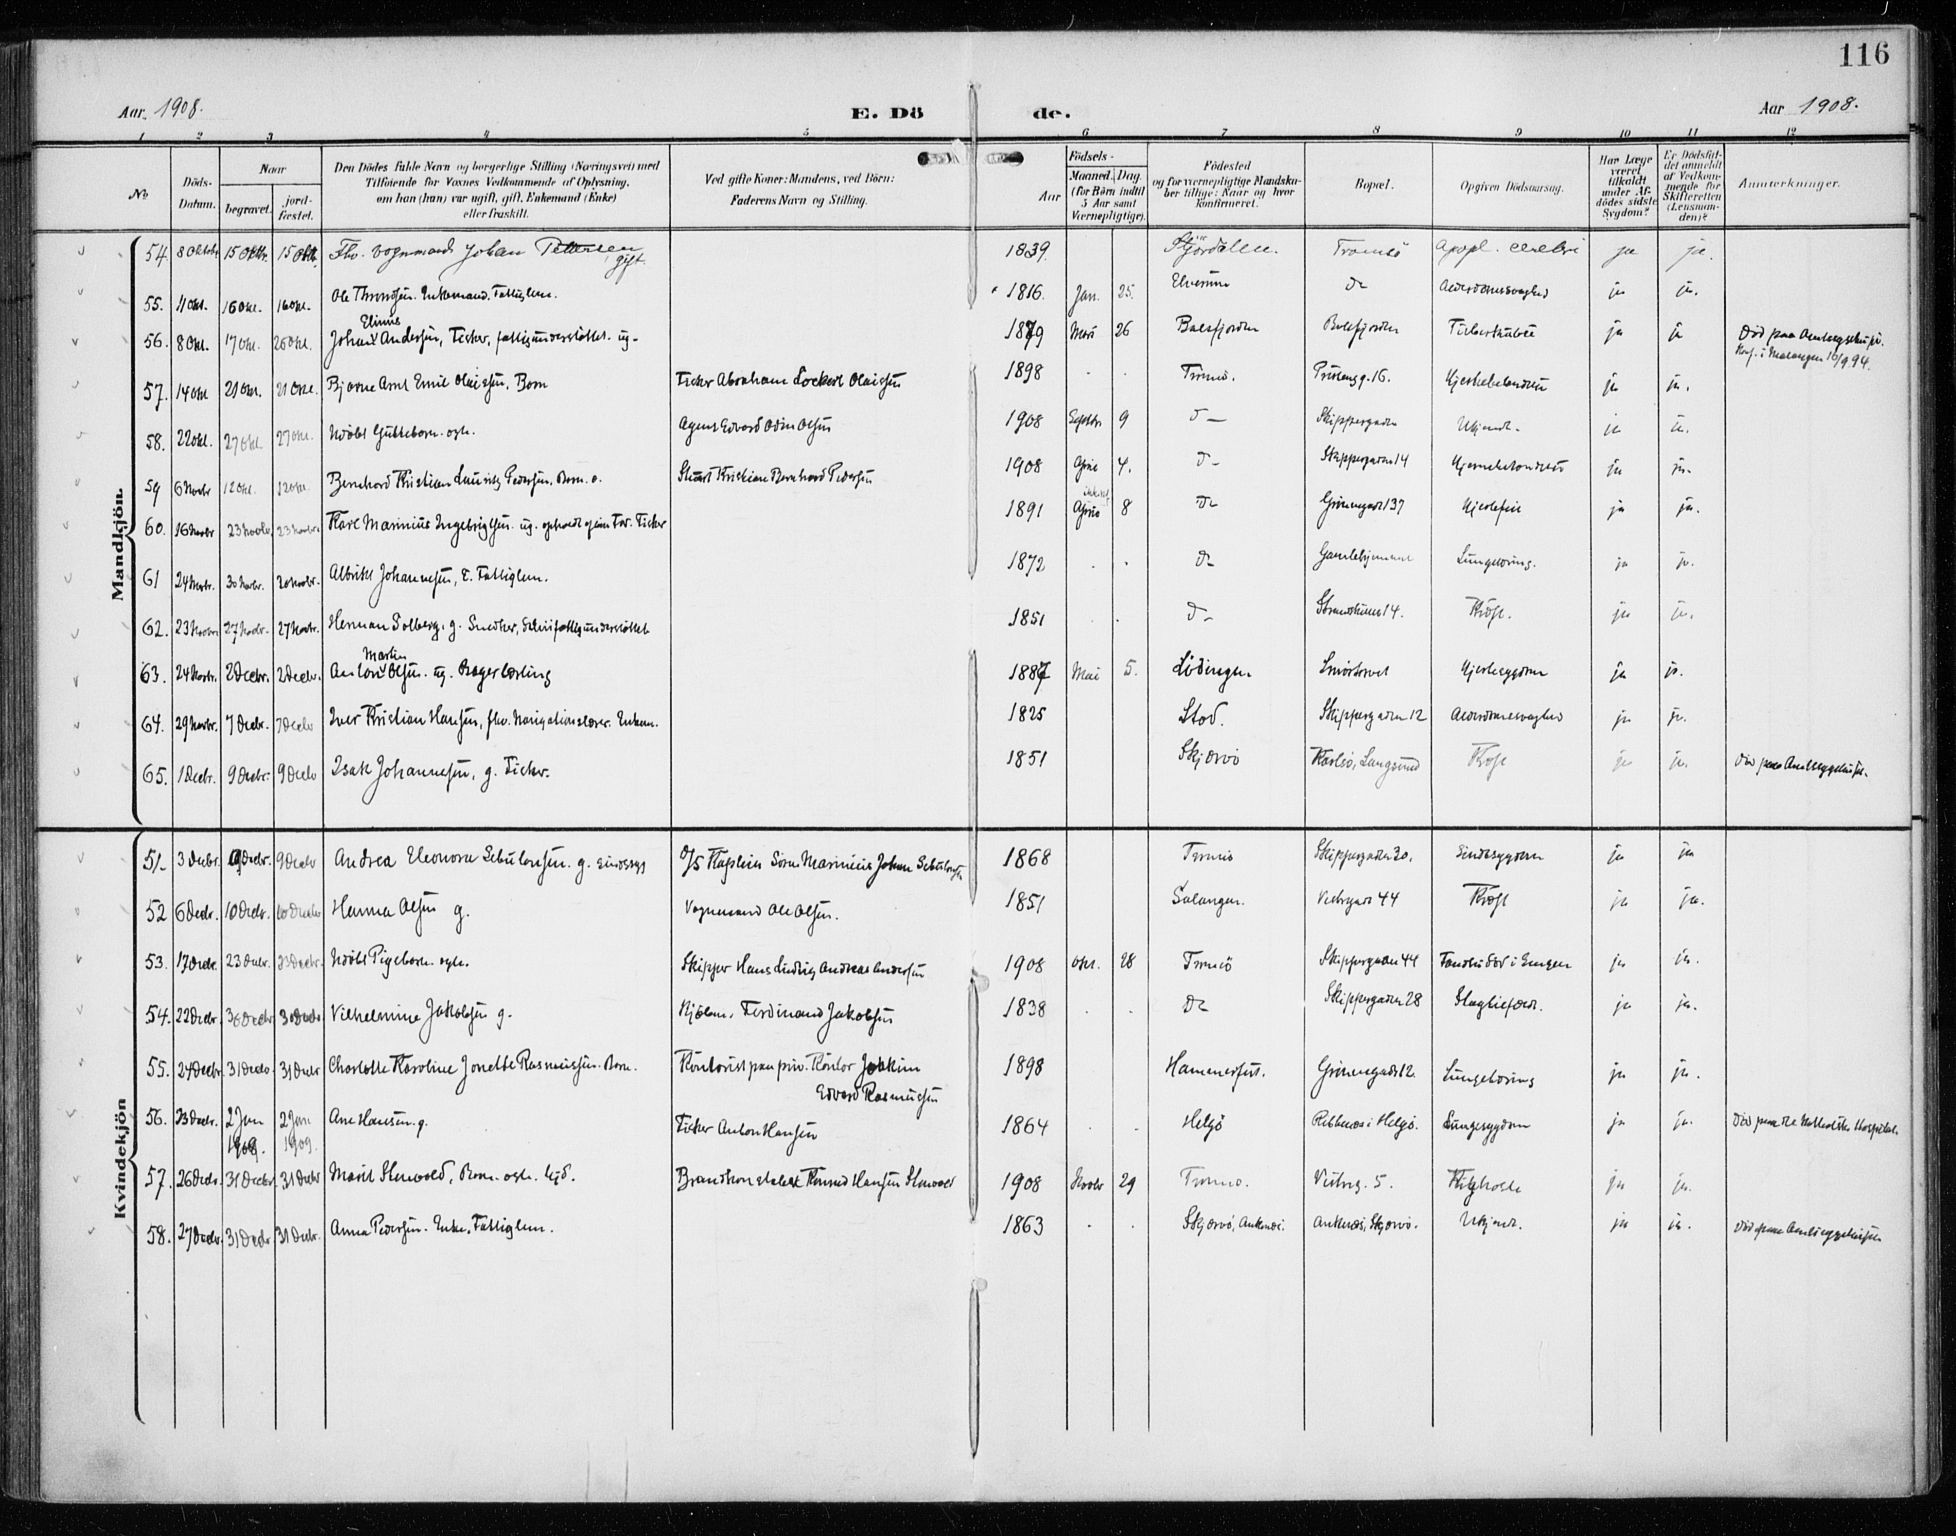 116
Aar 1908. E. Dö de. Aar 1908.
1 2 3 4 5 6 7 8 9 10 11 12
No
Döds-Datum.
Naar
begravet.
jord-fæstet.
Den Dödes fulde Navn og borgerlige Stilling (Næringsvei) med
Tilföiende for Voxnes Vedkommende af Oplysning,
om han (hun) var ugift, gift, Enkemand (Enke)
eller fraskilt.
Ved gifte Koner: Mandens, ved Börn:
Faderens Navn og Stilling.
Födsels-
Aar
Maaned. Dag.
(for Börn indtil
5 Aar samt
Værnepligtige).
Födested
og for værnepligtige Mandska-
ber tillige: Naar og hvor
konfirmeret.
Bopæl.
Opgiven Dödsaarsag.
Har Læge
været
tilkaldt
under Af-
dödes sidste
Sygdom?
Er Dödsfal-
det anmeldt
af Vedkom-
mende for
Skifteretten
(Lensman-
den)?
Anmærkninger.
Mandkjön.
54. 8 Oktobr 15 Oktbr. 15 Okt. Fhv. vognmand Johan Petersen gift. 1839. Stjördalen. Tromsö Apopl. cerebri ja ja.
55. 11 Okt. 16 Okt. 16 Okt. Ole Throndsen. Enkemand. Fattiglem. 1816. Jan. 25. Elverum do Alderdomssvaghed ja ja.
56. 8 Okt. 17 Okt. 26 Okt. Johan Elinus Andersen, Fisker, fattigunderstöttet. ug. 1879 26 Balsfjorden Balsfjorden Tuberkulose ja ja Död paa Amtssygehuset.
Konf. i Malangen 16/9 94.
57. 14 Okt 21 Okt. 21 Okt. Bjarne Arnt Emil Olaissen, Barn Fisker Abraham Lockert Olaissen 1898 Tromsö. g. 16. Hjertebetændelse ja ja.
58. 22 Okt. 27 Okt. 27 Okt. Udöbt Guttebarn. egte. Agent Edvard Odin Olsen 1908 Septbr 9 do Skippergaden Ukjendt. ja ja.
59 6 Novbr 12 12 Bernhard Kristian Lauritz Pedersen. Barn. Kristian Bernhard Pedersen 1908 April 4. do Skippergaden 14 Hjernebetændelse ja ja.
60. 16 Novbr 23 Novbr. 23 Novbr. Karl Marinius Ingebrigtsen. ug. Fisker 1891 April 8 do Grönnegade 137 Hjertefeil ja ja.
61 24 Novbr. 30 Novbr. 30 Novbr. Albrikt Johannesen, E. Fattiglem. 1872 do Gamlehjemmet Lungetæring. ja ja.
62. 23 Novbr. 27 Novbr. 27 Novbr. Herman Solberg. g. Snedker, fattigunderstöttet 1851 do 14. Kræft. ja ja.
63. 24 Novbr. 2 Decbr. 2 Decbr. Anton Martin Olsen. ug. Bagerlærling 1887 Mai 5. Lödingen Smörtorvet Hjertesygdom ja ja.
64. 29 Novbr. 7 Decbr. 7 Decbr Iver Kristian Hansen, fhv. Navigationslærer. Enkem. 1825 Stod. Skippergaden 12 Alderdomssvaghed ja ja.
65. 1 Decbr. 9 Decbr. 9 Decbr Isak Johannesen, g. Fisker. 1851 Skjærvö Karlsö, Langsund Kræft ja ja. Död paa Amtssygehuset.
Kvindekjön
51. 3 Decbr. 9 Decbr. 9 Decbr Andrea Eleonora Sebulonsen. g. sindssyg Marinius Johan Sebulonsen 1868 Tromsö Skippergaden 30. Sindssygdom ja ja
52 6 Decbr. 10 Decbr. 10 Decbr Hanna Olsen g. Vognmand Ole Olsen. 1851 Salangen. 44 Kræft ja ja.
53. 17 Decbr. 23 Decbr. 23 Decbr. Udöbt Pigebarn. egte. Skipper Hans Ludvig Andreas Andersen 1908 Okt. 28 Tromsö Skippergaden 44 Fandtes död i Sengen ja ja.
54. 22 Decbr. 30 Decbr. 30 Decbr Vilhelmine Jakobsen g. Ferdinand Jakobsen 1838 do Skippergaden 28 Slagtilfælde. ja ja.
55. 24 Decbr. 31 Decbr. 31 Decbr Charlotte Karoline Jonette Rasmussen. Barn. Kontorist paa priv. Kontor Joakim
Edvard Rasmussen 1898 Hammerfest. Grönnegade 12. Lungetæring ja ja.
56. 23 Decbr. 2 Jan 1909. 2 Jan 1909. Ane Hansen. g. Fisker Anton Hansen 1864 Helgö i Helgö. Lungesygdom ja ja. Död paa det katholske Hospital.
57. 26 Decbr. 31 Decbr 31 Decbr Marit Stenvold, Barn. egte. Brandkonstabel Konrad Hansen Stenvold 1908 Novbr 29 Tromsö. 5. Kighoste ja ja.
58. 27 Decbr. 31 Decbr. 31 Decbr. Anna Pedersen. Enke. Fattiglem. 1863 Skjærvö, Ankenæs. Ankenæs, Skjærvö. Ukjendt. ja ja. Död paa Amtssygehuset